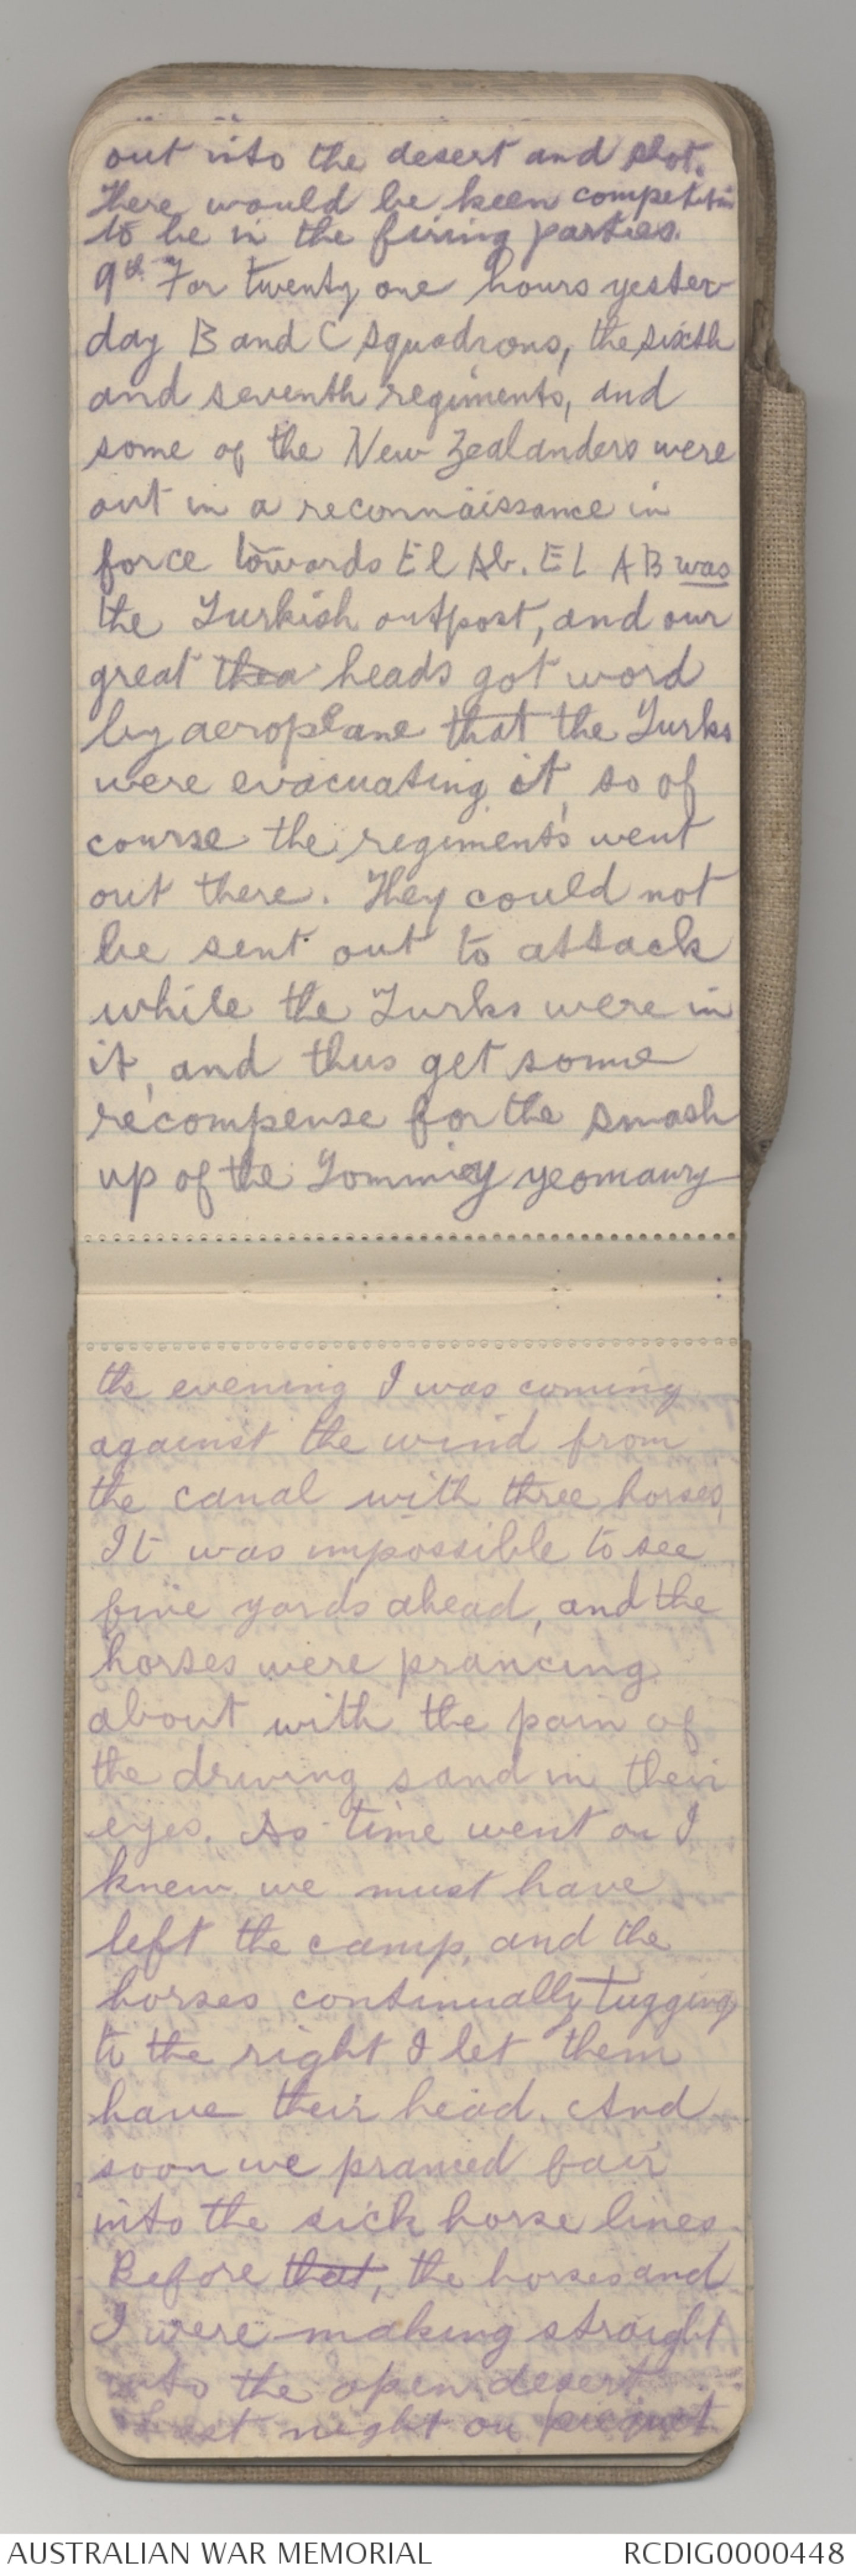 out into the desert and shot.
There would be keen competition
to be in the firing parties.
9th For twenty one hours yester-
day B and C squadrons, the sixth
and seventh regiments, and
some of the New Zealanders were
out in a reconnaissance in
force towards El Ab. EL AB was
the Turkish outpost, and our
great thea heads got word
by aeroplane that the Turks
were evacuating it, so of
course the regiments went
out there. They could not
be sent out to attack
while the Turks were in
it, and thus get some
recompense for the smash
up of the Tommiey yeomanry
the evening I was coming
against the wind from
the canal with three horses,
It was impossible to see
five yards ahead, and the
horses were prancing
about with the pain of
the driving sand in their
eyes. As time went on I
knew we must have
left the camp, and the
horses continually tugging
to the right I let them
have their head. And
soon we pranced fair
into the sick horse lines.
Before that, the horses and
I were making straight
into the open desert
Last night on picquet
AUSTRALIAN WAR MEMORIAL
RCDIG0000448